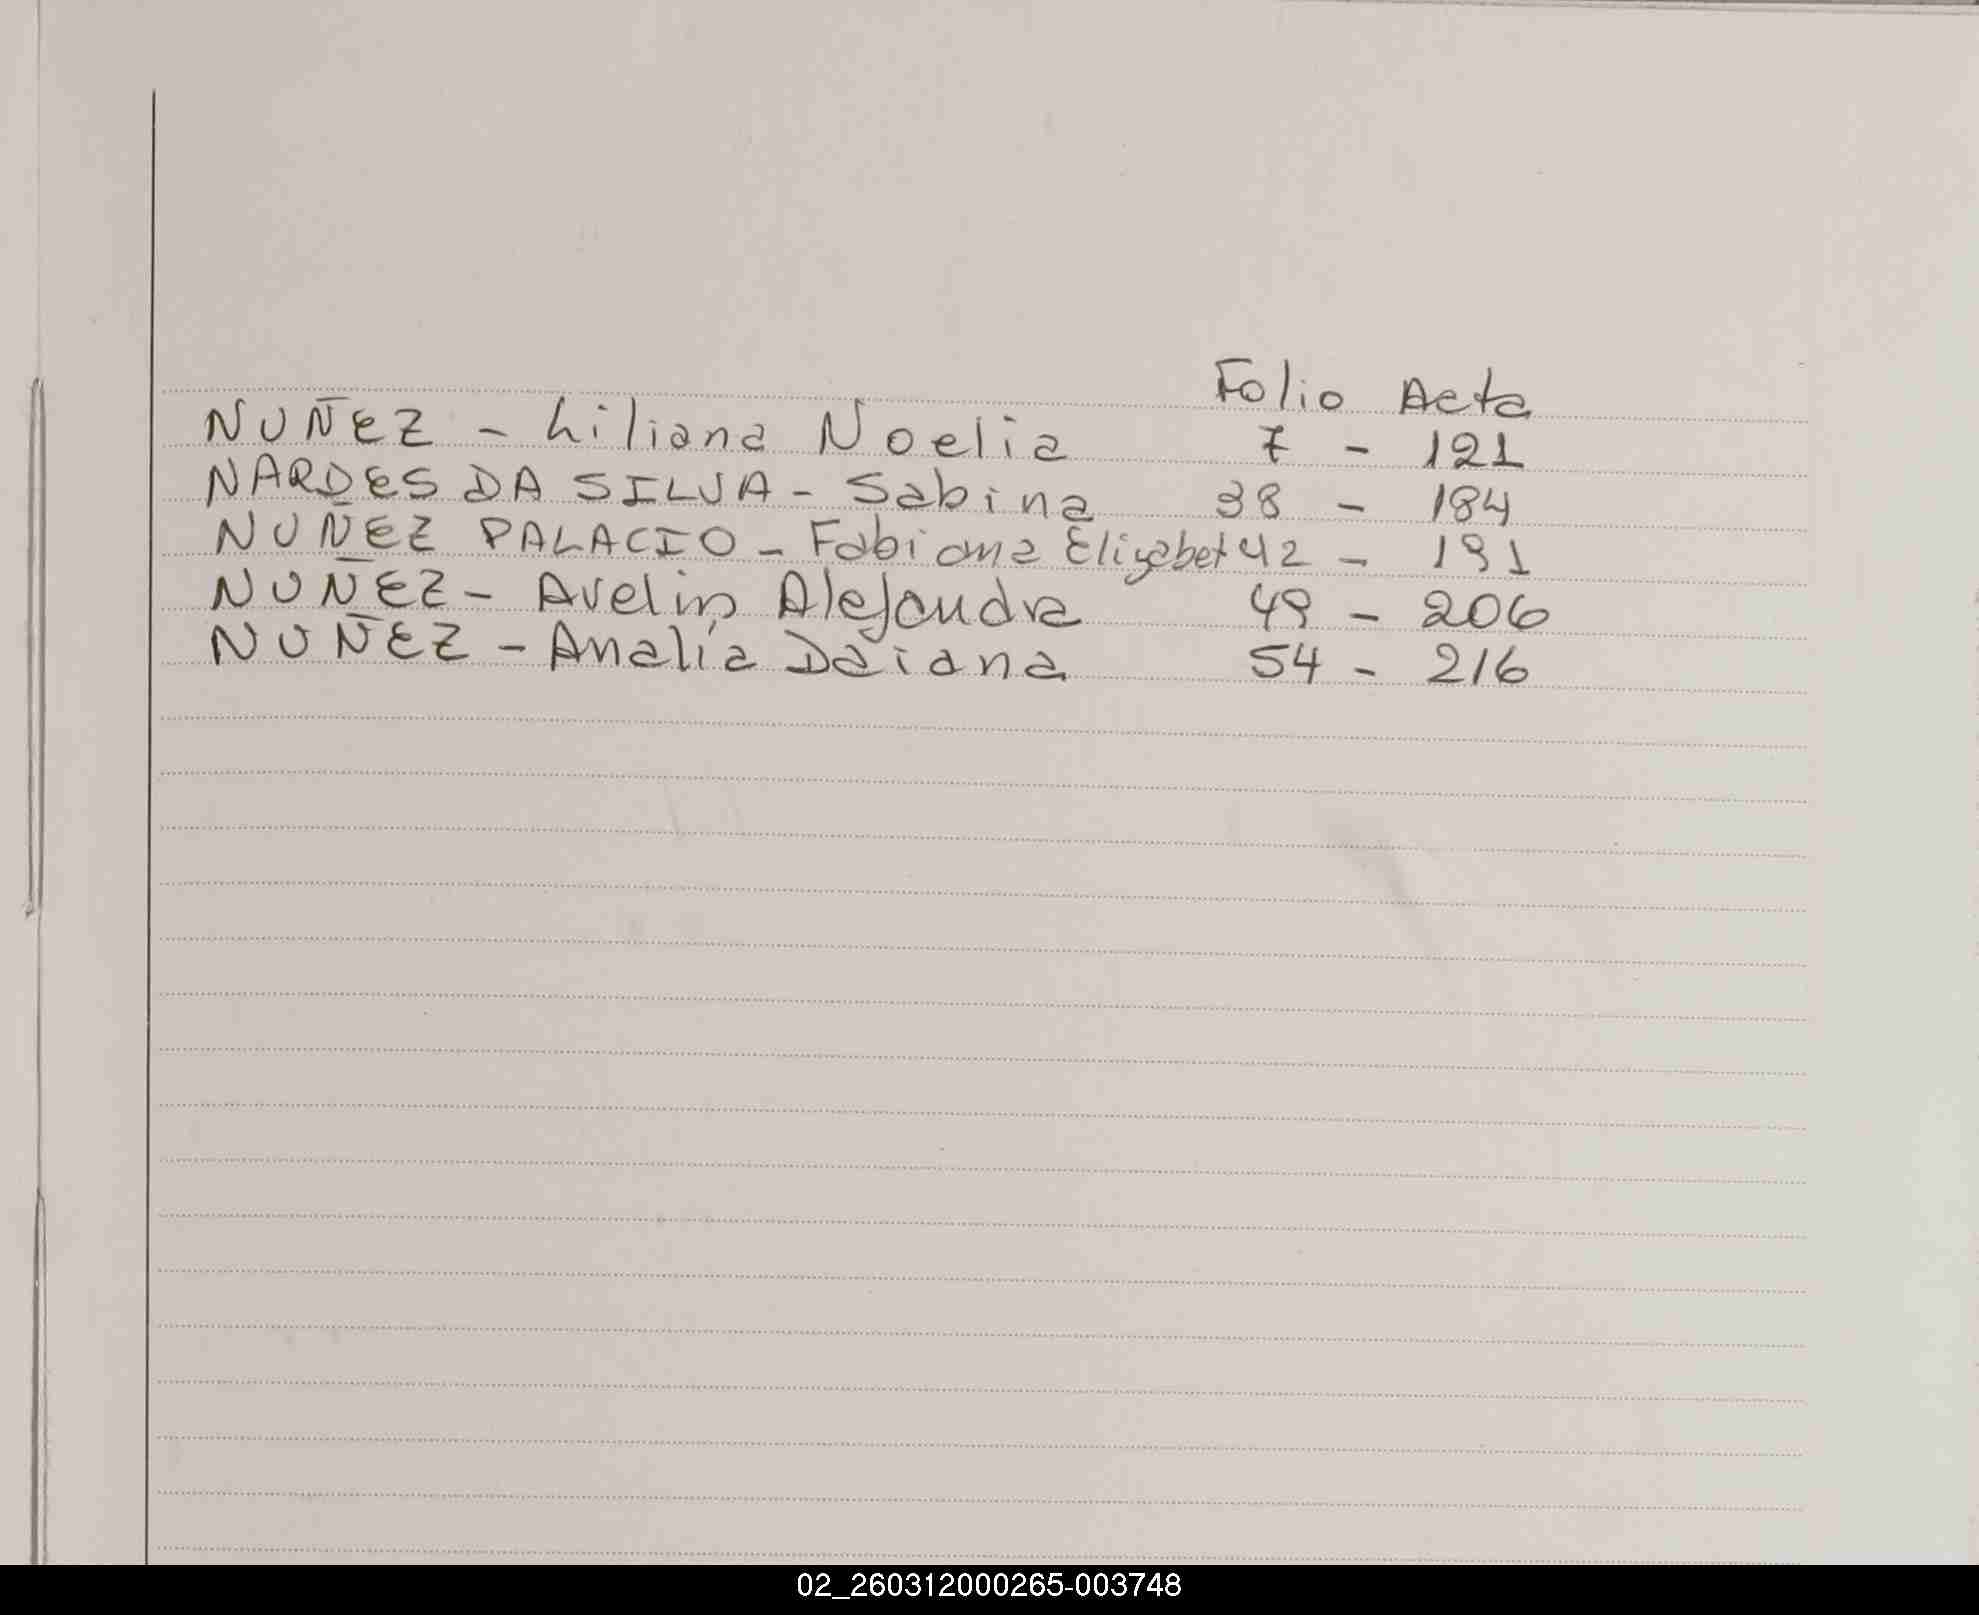 Folio Acta
NUÑEZ - Liliana Noelia 7 - 121
NARDES DA SILVA - Sabina 38 - 184
NUÑEZ PALACIO - Fabiana Elizabet 42 - 191
NUÑEZ - Avelin Alejandra 49 - 206
NUÑEZ - Analía Daiana 54 - 216
02_260312000265-003748